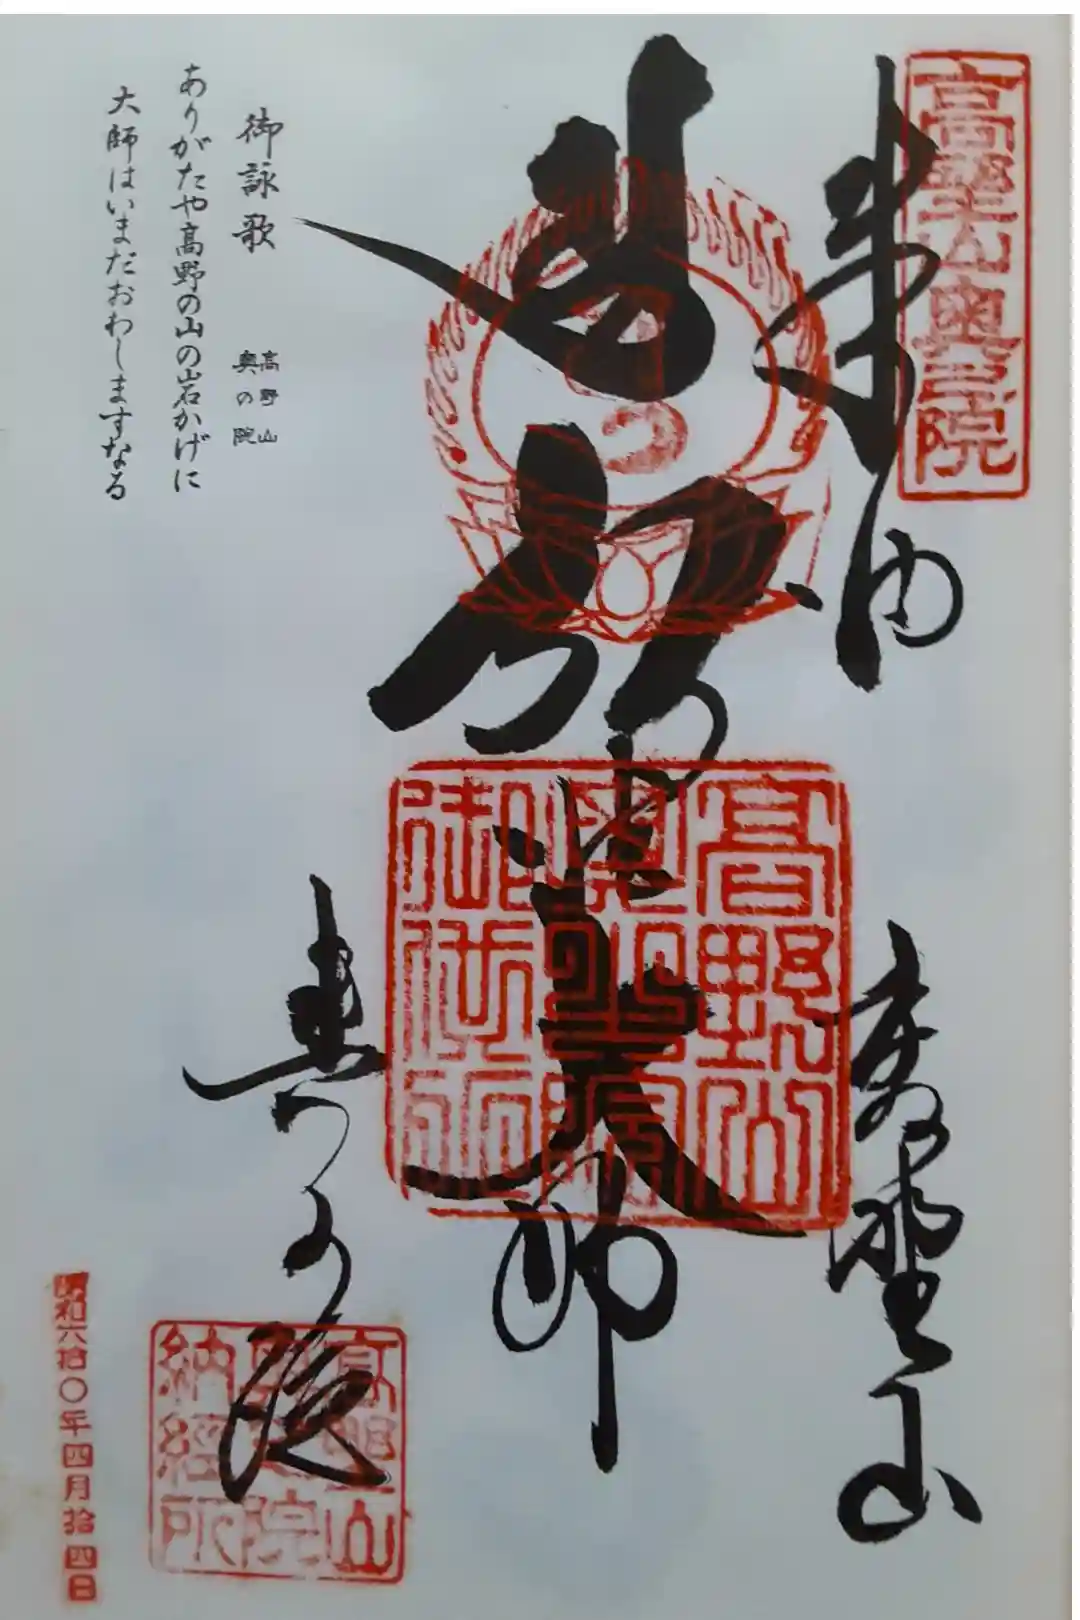 高野山奥之院
奉納
高野山
弘法大師
高野山
奥之院
御供所
奥の院
高野山
奥之院
納経所
御詠歌
高野山
奥の院
ありがたや高野の山の岩かげに
大師はいまだおわしますなる
昭和六拾〇年四月拾四日